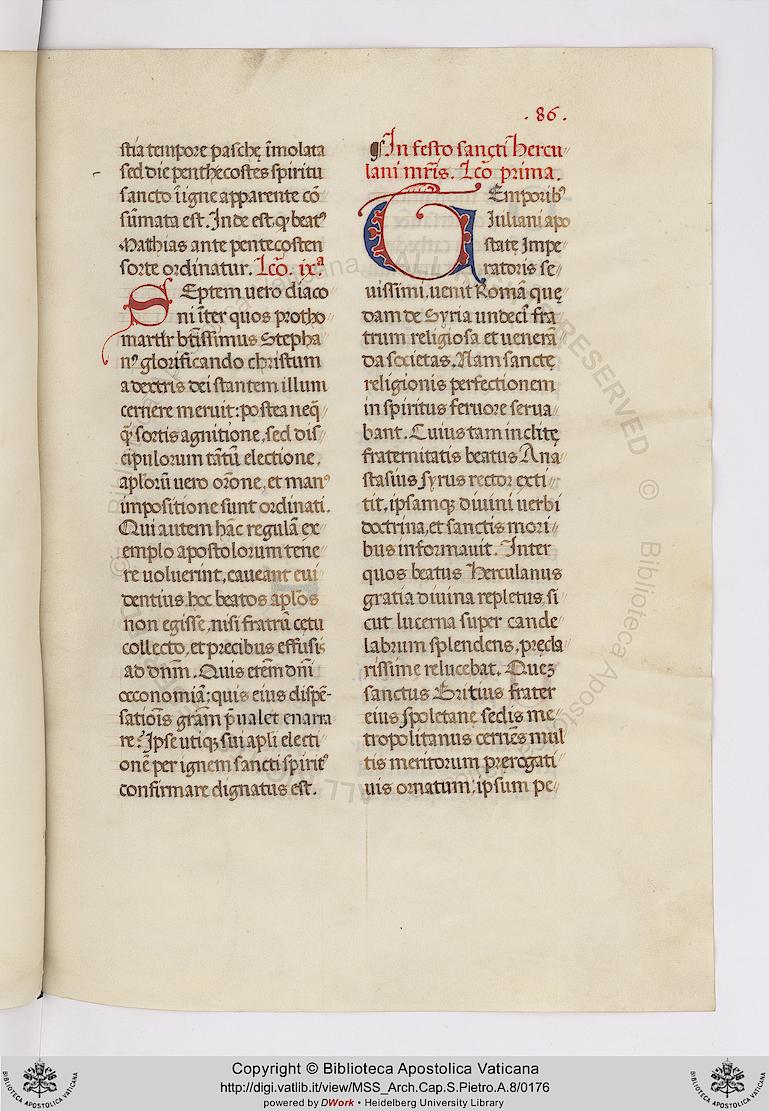 . 86 .
stia tempore paschę īmolata
sed die penthecostes spiritu
sancto ī igne apparente cō
sūmata est. Inde est, qͥ beatꝰ
Matthias ante pentecosten
sorte ordinatur. Lcō. ix.ª
Septem uero diaco
ni īter quos protho
martir btīssimus Stepha
nꝰ glorificando christum
a dextris dei stantem illum
cernere meruit: postea neq̨
q̄ sortis agnitione, sed dis
cipulorum tātū electione,
aplōrū uero orōne, et manꝰ
impositione sunt ordinati.
Qui autem hāc regulā ex
emplo apostolorum tene
re uoluerint, caueant eui
dentius hoc beatos aplōs
non egisse, nisi fratrū cętu
collecto, et precibus effusis
ad dnm̄. Quis etēm dnī
œconomiā: quis eius dispē-
satiōīs grām p̄ualet enarra
re? Ipse utiq̨ sui apli electi
onē per ignem sancti spiritꝰ
confirmare dignatus est.
¶ In festo sancti hercu
lani mr̄is. Lcō prima.
Temporibꝰ
Iuliani apo
statę Impe
ratoris se
uissimi, uenit Romā quę
dam de Syria undecī fra
trum religiosa et uenerā
da societas. Nam sanctę
religionis perfectionem
in spiritus feruore serua
bant. Cuius tam inclitę
fraternitatis beatus Ana
stasius syrus rector exti
tit, ipsamq̨ diuini uerbi
doctrina, et sanctis mori
bus informauit. Inter
quos beatus Herculanus
gratia diuina repletus, si
cut lucerna super cande
labrum splendens, pręcla
rissime relucebat. Quez
sanctus Britius frater
eius spoletanę sedis me
tropolitanus cernēs mul
tis meritorum prerogati
uis ornatum: ipsum pe
Copyright © Biblioteca Apostolica Vaticana
http://digi.vatlib.it/view/MSS_Arch.Cap.S.Pietro.A.8/0176
powered by DWork • Heidelberg University Library
BIBLIOTECA APOSTOLICA VATICANA
BIBLIOTECA APOSTOLICA VATICANA